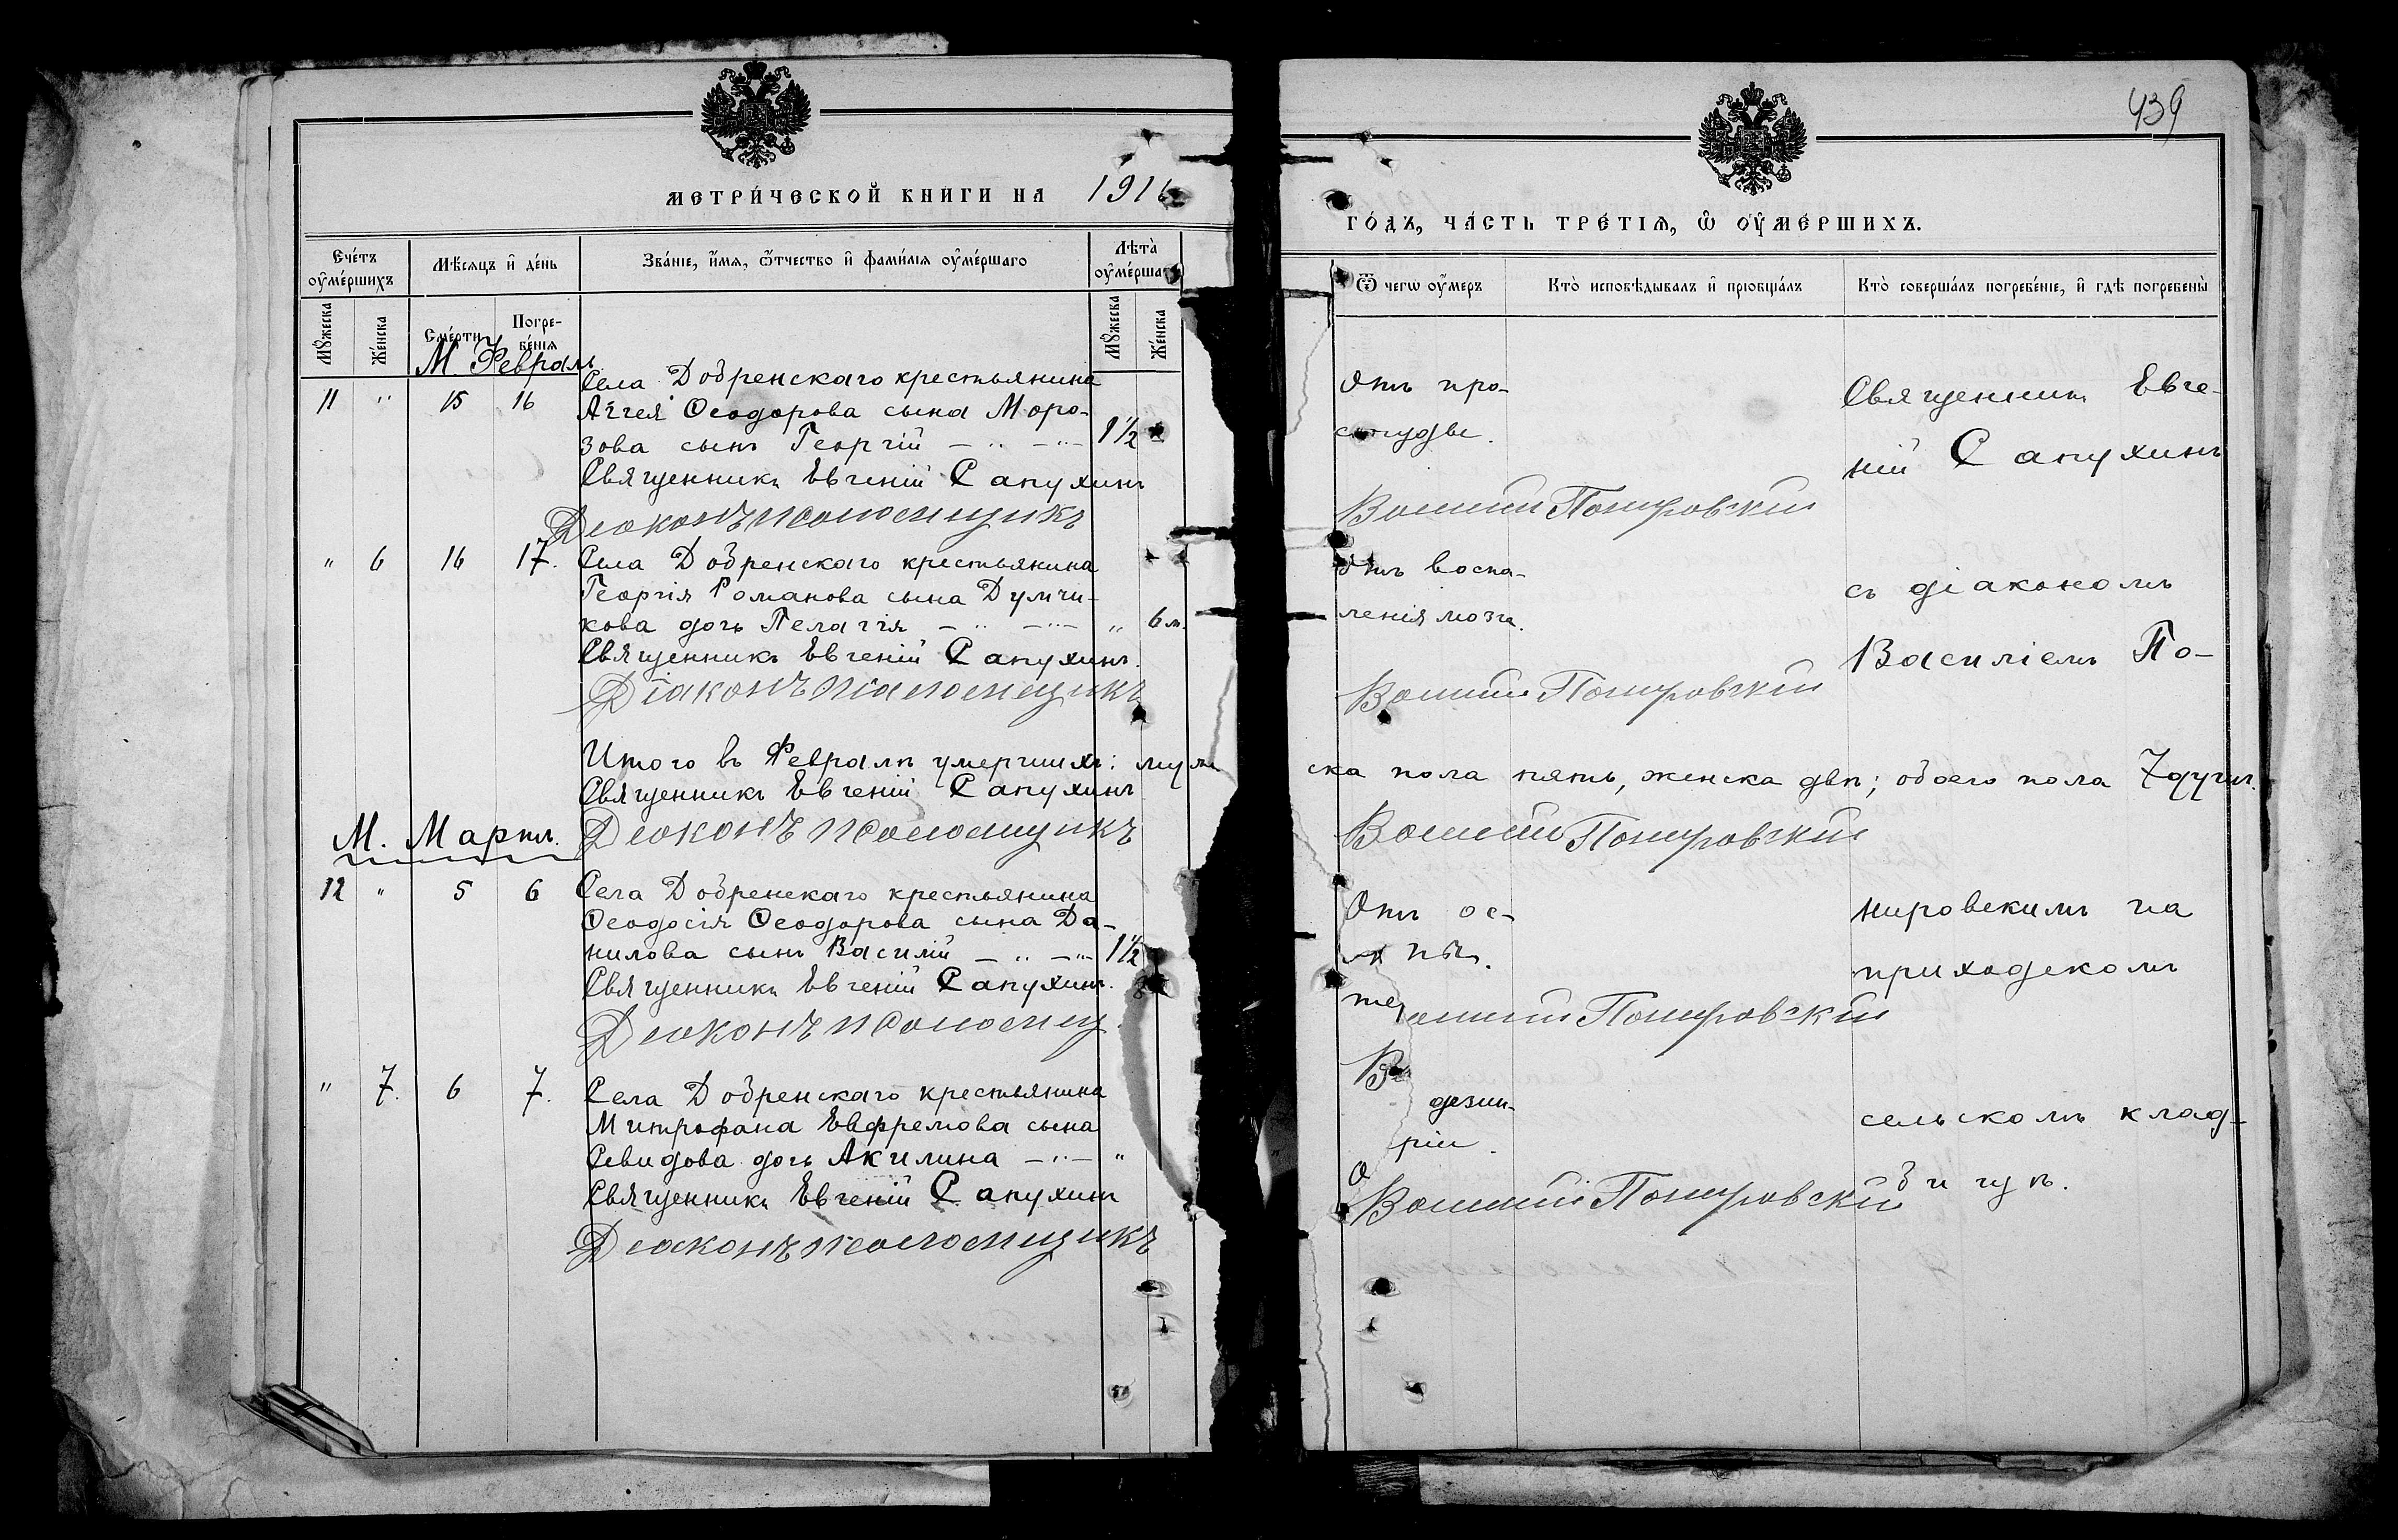 439
МЕТРИ́ЧЕСКОЙ КНИГИ НА 1916
ГО́ДЪ, ЧА́СТЬ ТРЕ́ТІѦ, Ѿ ОУ҆МЕ́РШИХЪ.
Сче́тъ оу҆ме́ршихъ
Мѣ́сѧцъ и҆ де́нь
Зва́нїе, и҆́мѧ, ѻ҆́тчество и҆ фами́лїѧ оу҆ме́ршаго
Лѣ́та оу҆ме́ршаг
Ѿ чегѡ̀ оу҆́меръ
Кто̀ исповѣ́дывалъ и҆ прїобща́лъ
Кто̀ соверша́лъ погребе́нїе, и҆ гдѣ̀ погребены̀
Мꙋ́жеска
Же́нска
Сме́рти
Погре-
бе́нїѧ
Мꙋ́жеска
Же́нска
М. Февраль
Села Добренскаго крестьянина
11 " 15 16 Аггея Ѳеодорова сына Моро-
зова сынъ Георгій — " — " — 1½
Священникъ Евгеній Сапухинъ
Діаконъ псаломщикъ
Отъ про-
студы.
Василій Понировскій
Священникъ Евге-
ній Сапухинъ
" 6 16 17. Села Добренскаго крестьянина
Георгія Романова сына Думчи-
кова дочь Пелагія — " — " — " 6 м.
Священникъ Евгеній Сапухинъ.
Діаконъ псаломщикъ
Отъ воспа-
ленія мозга.
Василій Понировскій
съ діакономъ
Василіемъ По-
Итого въ Февралѣ умершихъ: муже
ска пола пять, женска двѣ; обоего пола 7 душъ.
Священникъ Евгеній Сапухинъ
Діаконъ псаломщикъ
Василій Понировскій
М. Мартъ.
12 " 5 6 Села Добренскаго крестьянина
Ѳеодосія Ѳеодорова сына Да-
нилова сынъ Василій — " — " — 1½
Священникъ Евгеній Сапухинъ.
Діаконъ псаломщ
Отъ ос-
пы.
Понировскій
нировскимъ на
приходскомъ
" 7. 6 7. Села Добренскаго крестьянина
Митрофана Евфремова сына
Севидова дочь Акилина — " — "
Священникъ Евгеній Сапухинъ
Діаконъ псаломщикъ
дезин-
ріи.
Василій Понировскій
сельскомъ клад-
бищѣ.